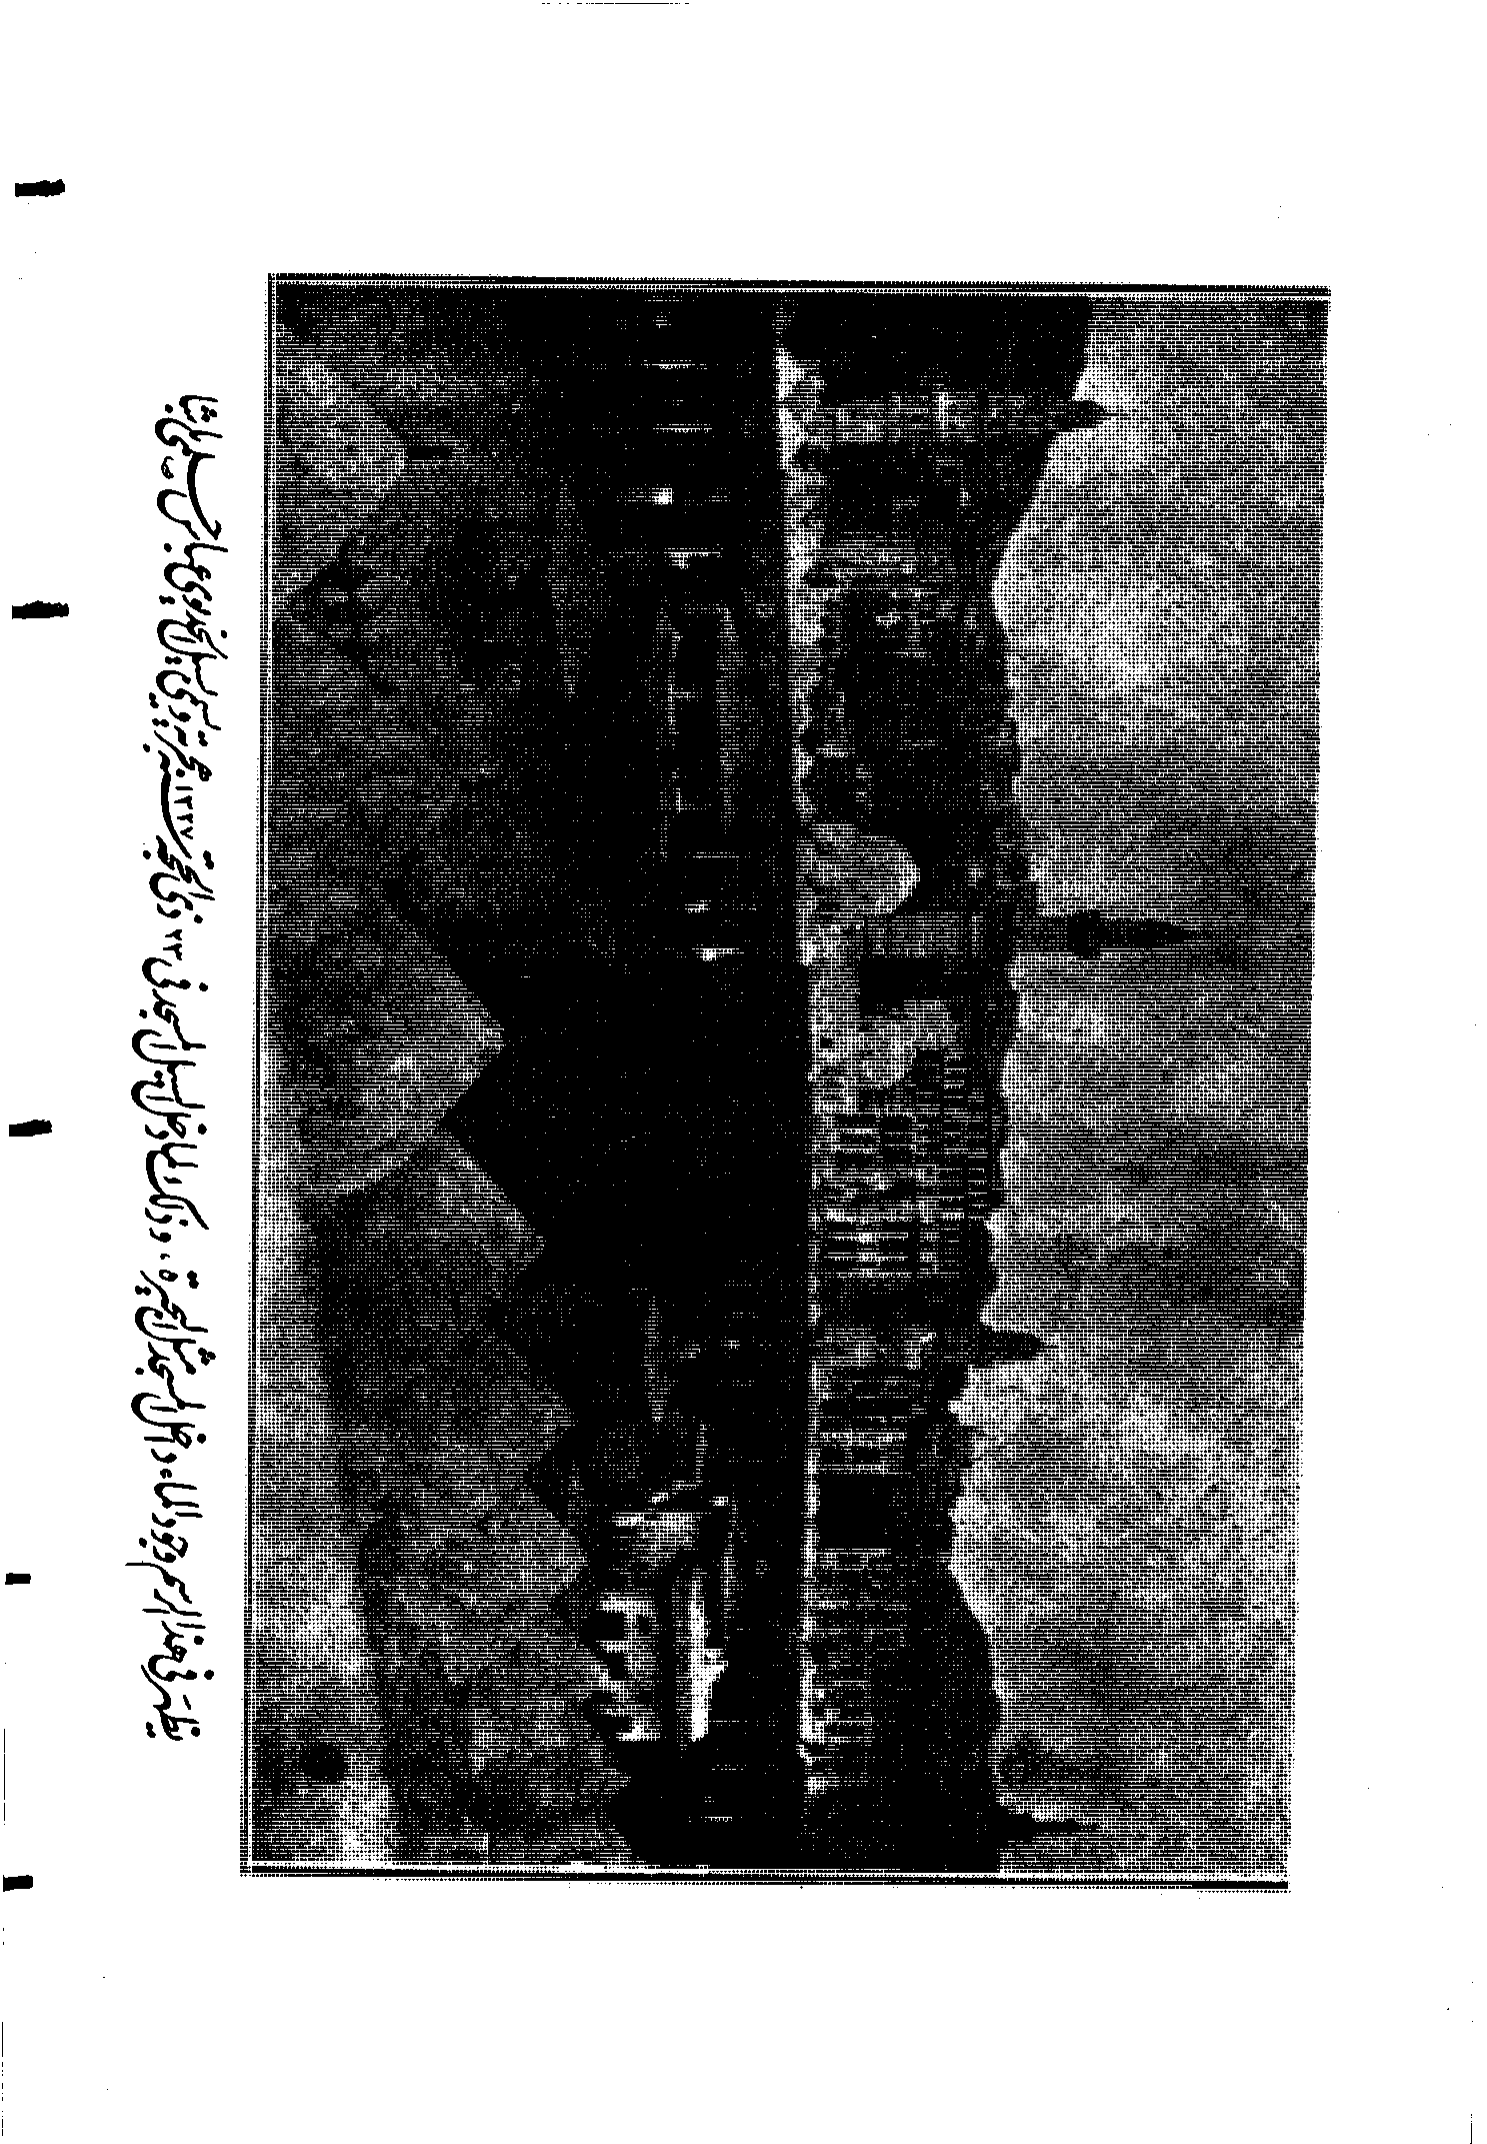 يظهر في هذا الرسم وجود الماء داخل المسجد مثل البحيرة، وذلك لما دخل السيل المسجد في ٢٣ ذي الحجة سنة ١٣٢٧ هجرية ويسمى بسيل الخديوي عباس حلمي باشا